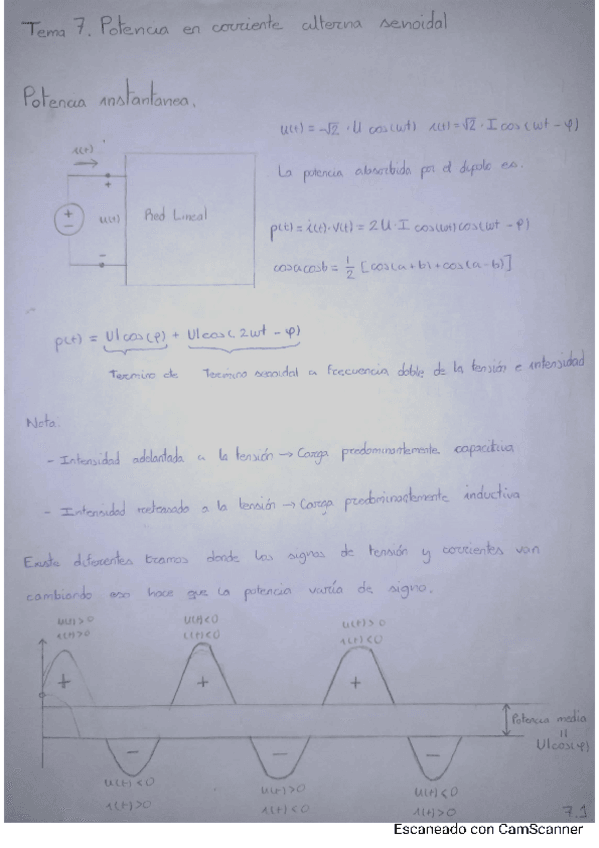 Tema 7. Potencia en corriente alterna senoidal
Potencia instantanea.
u(t) = √2 · U cos(wt) i(t) = √2 · I cos(wt - φ)
i(t)
+
+
-
u(t)
Red Lineal
-
La potencia absorbida por el dipolo es.
p(t) = i(t) · v(t) = 2U · I cos(wt) cos(wt - φ)
cos a cos b = 1/2 [cos(a+b) + cos(a-b)]
p(t) = UI cos(φ) + UI cos(2wt - φ)
Termino cte Termino senoidal a frecuencia doble de la tensión e intensidad
Nota.
- Intensidad adelantada a la tensión → Carga predominantemente capacitiva
- Intensidad retrasada a la tensión → Carga predominantemente inductiva
Existe diferentes tramos donde los signos de tensión y corrientes van
cambiando eso hace que la potencia varía de signo.
u(t)>0 u(t)<0 u(t)>0
i(t)>0 i(t)<0 i(t)<0
+ + +
Potencia media
=
UI cos(φ)
- - -
u(t)<0 u(t)>0 u(t)<0
i(t)>0 i(t)<0 i(t)>0
7.1
Escaneado con CamScanner